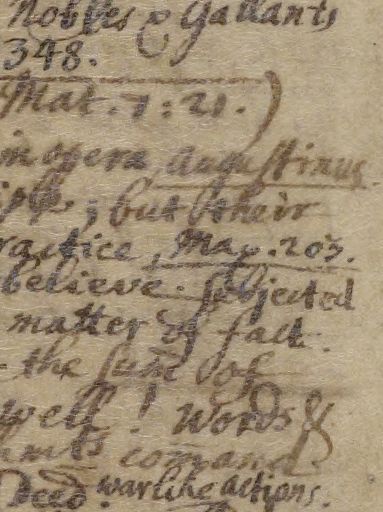 Nobles & Gallants
348.
Mat. 7: 21.)
in opera Augustinus
; but their
ractice, Map. 203.
believe. Subjected
matter of fact.
the sum of
well! Words &
comand
Deed. warlike actions.